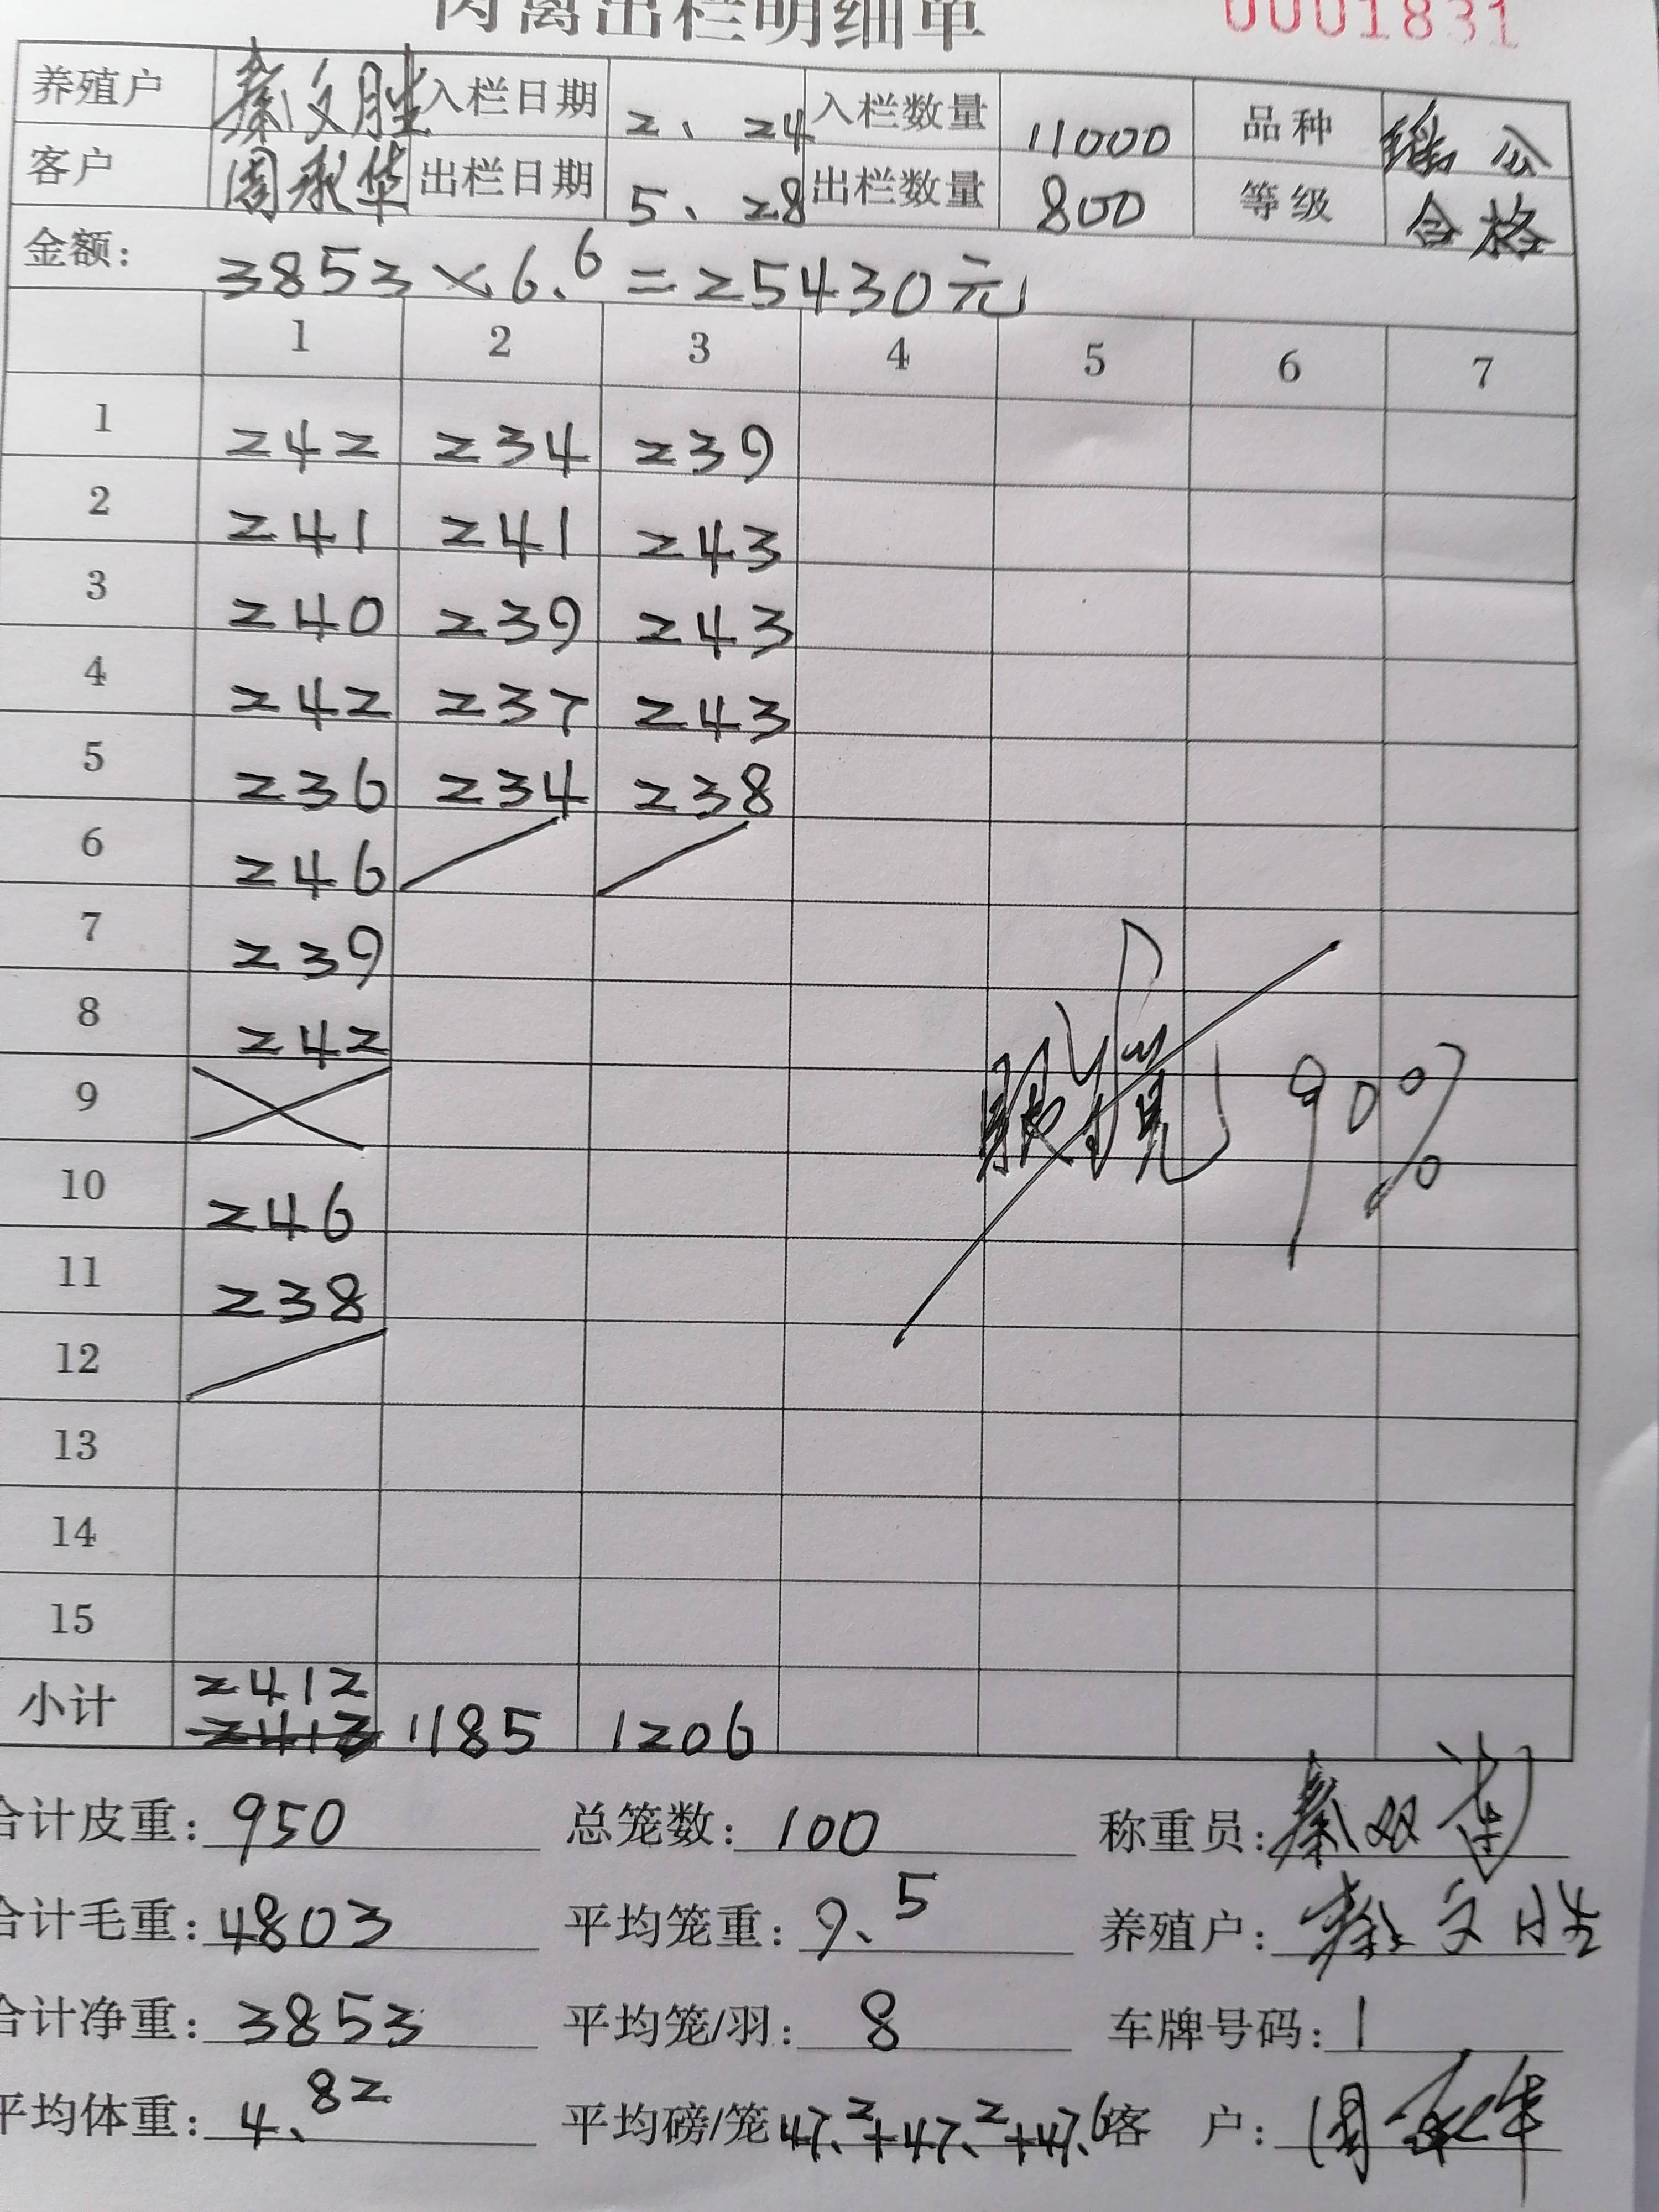 肉禽出栏明细单 0001831
养殖户 秦文胜 入栏日期 2、24 入栏数量 11000 品种 公
客户 周承华 出栏日期 5、28 出栏数量 800 等级 合格
金额: 3853×6.6=25430元
1 2 3 4 5 6 7
1 242 234 239
2 241 241 243
3 240 239 243
4 242 237 243
5 236 234 238
6 246
7 239
8 242
9
10 246
11 238
12
90%
13
14
15
小计 2412 1185 1206
合计皮重: 950 总笼数: 100 称重员: 秦双
合计毛重: 4803 平均笼重: 9.5 养殖户: 秦文胜
合计净重: 3853 平均笼/羽: 8 车牌号码: 1
平均体重: 4.82 平均磅/笼 47.2+47.2+47.6 客 户: 周承华